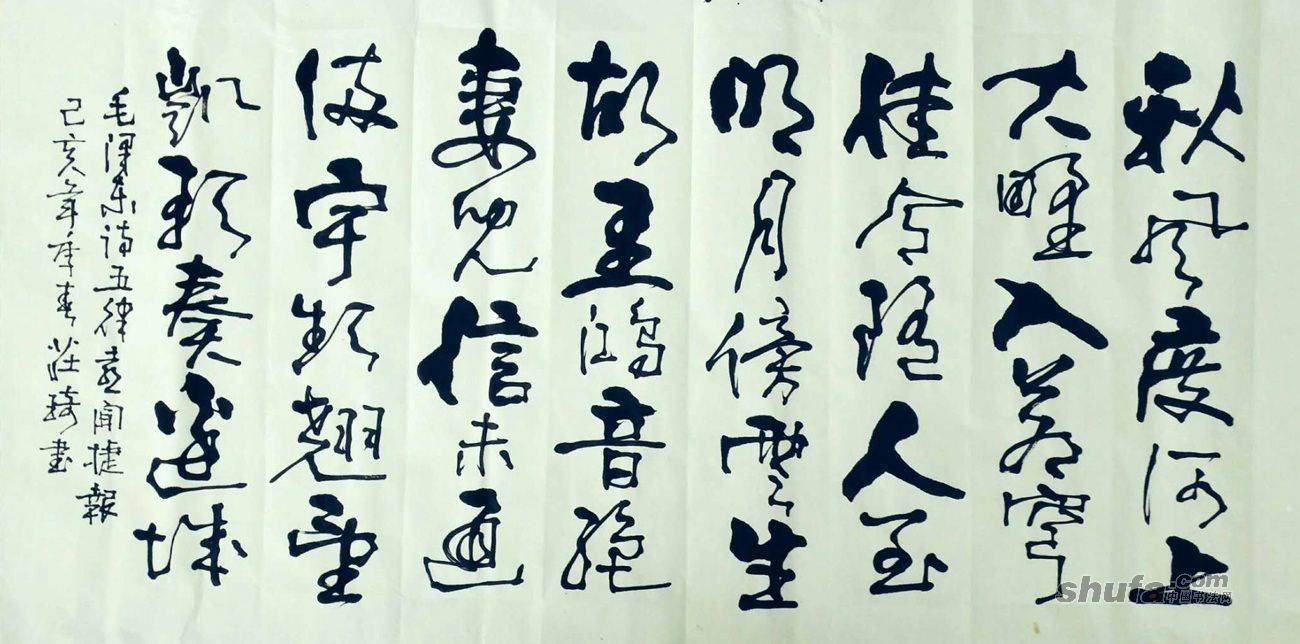 秋风度河上
大野入苍穹
佳令随人至
明月傍雲生
故里鸿音绝
妻兒信未通
满宇频翘望
凯歌奏邊城
毛澤东诗五律喜闻捷報
己亥年季春莊琦書
shufa.com
中国书法网